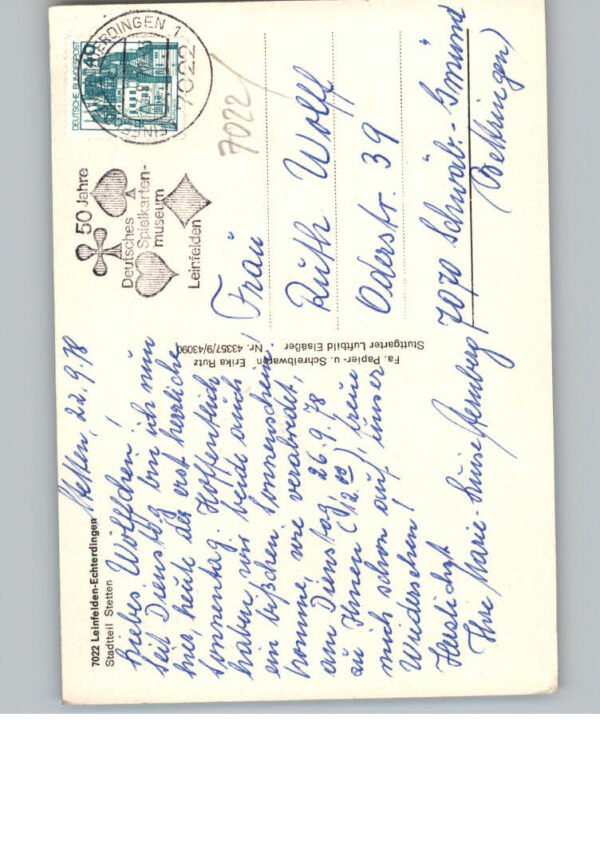 7022 Leinfelden-Echterdingen
Stadtteil Stetten
Stetten, 22.9.78
Liebes Wölffchen!
Seit Dienstag bin ich nun
hier, heute der erst herrliche
Sonnentag. Hoffentlich
haben wir beide auch
ein bißchen Sonnenschein.
komme, wie verabredet,
am Dienstag, 26.9.78
zu Ihnen (12.00), freue
mich schon auf unser
Wiedersehen!
Herzlichst
Ihre Marie-Luise Sternberg
Fa. Papier- u. Schreibwaren Erika Rutz
Stuttgarter Luftbild Elsäßer Nr. 43357/9/43090
50 Jahre
Deutsches
Spielkarten-
museum
Leinfelden
DEUTSCHE BUNDESPOST
40
ERDINGEN 1
7022
7022
Frau
Ruth Wolff
Oderstr. 39
7070 Schwäb.-Gmünd
(Bettringen)